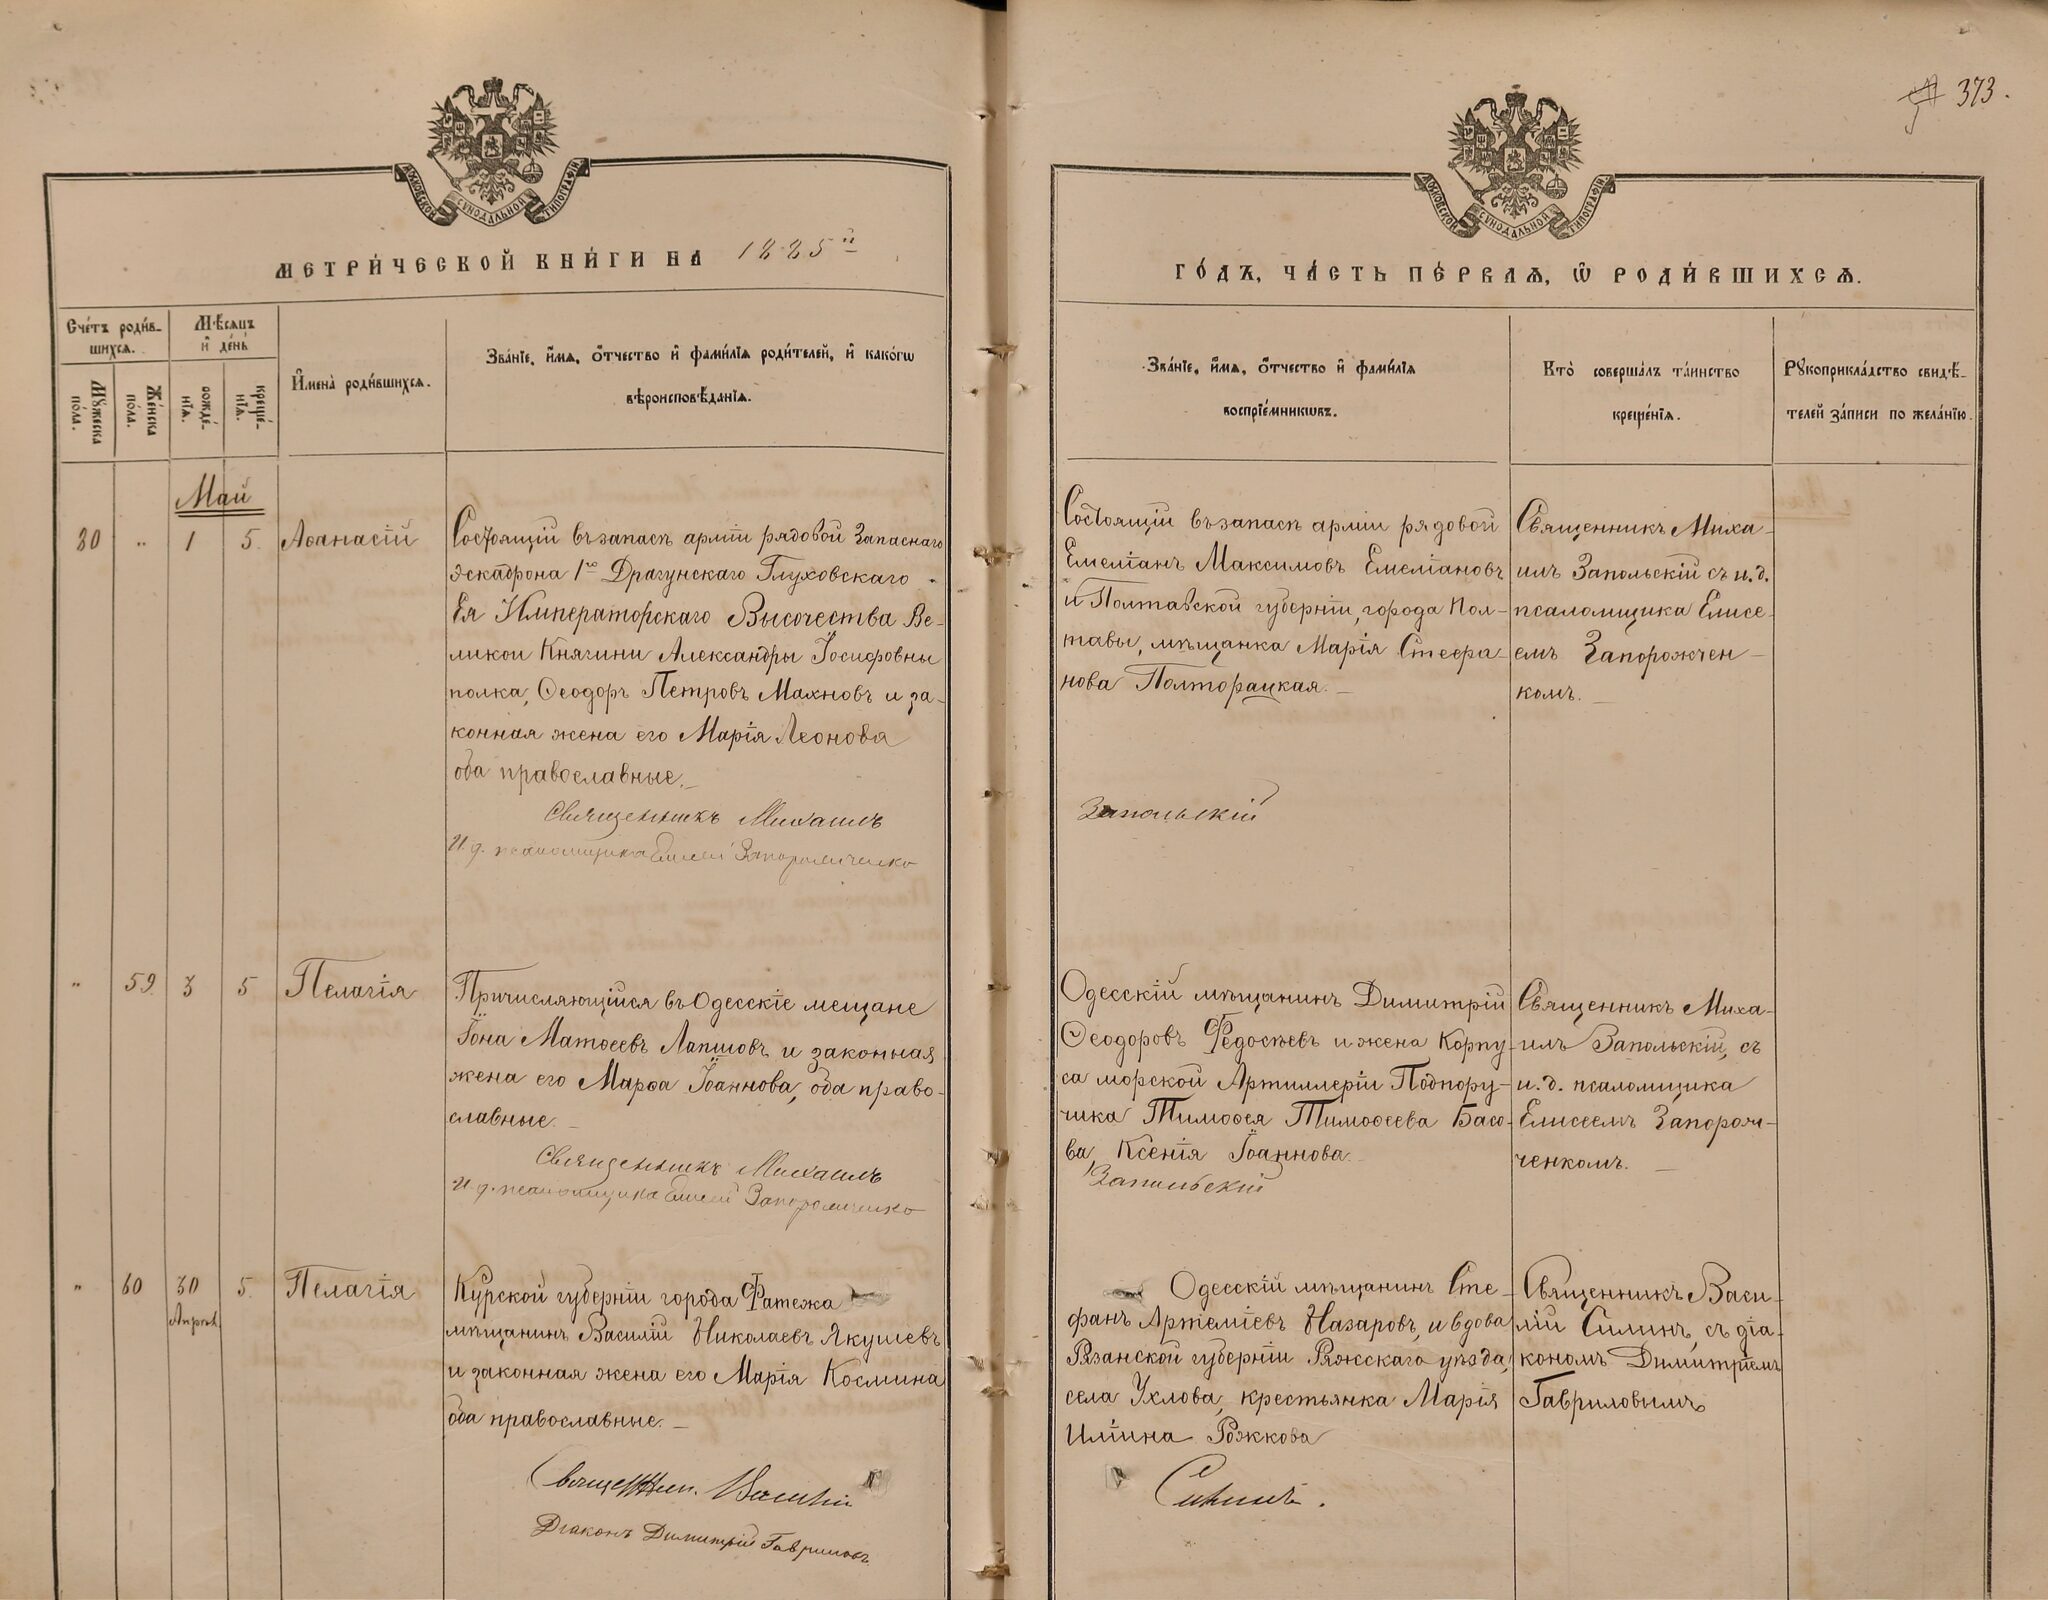 373.
МОСКОВСКОЙ СѴНОДАЛЬНОЙ ТИПОГРАФІИ
МОСКОВСКОЙ СѴНОДАЛЬНОЙ ТИПОГРАФІИ
МЕТРИ́ЧЕСКОЙ КНИ́ГИ НА 1885 й
ГО́ДЪ, ЧА́СТЬ ПЕ́РВАѦ, Ѡ҆ РОДИ́ВШИХСѦ.
Сче́тъ роди́в-
шихсѧ.
Мꙋ́жеска по́ла.
Же́нска по́ла.
Мѣ́сѧцъ
и҆ де́нь
рожде́-
нїѧ.
креще́-
нїѧ.
И҆мена̀ роди́вшихсѧ.
Зва́нїе, и҆́мѧ, ѻ҆́тчество и҆ фами́лїѧ роди́телей, и҆ како́гѡ
вѣроисповѣ́данїѧ.
Зва́нїе, и҆́мѧ, ѻ҆́тчество и҆ фами́лїѧ
воспрїе́мникѡвъ.
Кто̀ соверша́лъ та́инство
креще́нїѧ.
Рꙋкоприкла́дство свидѣ́-
телей за́писи по жела́нїю.
Май
30 " 1 5. Аѳанасій
Состоящій въ запасѣ арміи рядовой Запаснаго
эскадрона 1го Драгунскаго Глуховскаго
Ея Императорскаго Высочества Ве-
ликой Княгини Александры Іосифовны
полка, Ѳеодоръ Петровъ Махновъ и за-
конная жена его Марія Леонова
оба православные.
Священникъ Михаилъ
И. д. псаломщика Елисей Запорожченко
Состоящій въ запасѣ арміи рядовой
Емеліанъ Максимовъ Емеліановъ
и Полтавской губерніи, города Пол-
тавы, мѣщанка Марія Стефа-
нова Полторацкая.
Запольскій
Священникъ Миха-
илъ Запольскій съ и. д.
псаломщика Елисе-
емъ Запорожчен-
комъ.
" 59. 3 5 Пелагія
Причисляющійся въ Одесскіе мещане
Іона Матѳеевъ Лапшовъ и законная
жена его Марѳа Іоаннова, оба право-
славные.
Священникъ Михаилъ
И. д. псаломщика Елисей Запорожченко
Одесскій мѣщанинъ Димитрій
Ѳеодоровъ Федосѣевъ и жена Корпу-
са морской Артиллеріи Подпору-
чика Тимоѳея Тимоѳеева Басо-
ва Ксенія Іоаннова.
Запольскій
Священникъ Миха-
илъ Запольскій, съ
и. д. псаломщика
Елисеемъ Запорож-
ченкомъ.
" 60 30 5. Пелагія
Апрѣл.
Курской губерніи города Фатежа
мѣщанинъ Василій Николаевъ Якушевъ
и законная жена его Марія Космина
оба православные.
Священн. Василій
Діаконъ Димитрій Гавриловъ
Одесскій мѣщанинъ Сте-
фанъ Артеміевъ Назаровъ, и вдова
Рязанской губерніи Ряжскаго уѣзда,
села Ухлова, крестьянка Марія
Иліина Рожкова
Силинъ.
Священникъ Васи-
лій Силинъ, съ діа-
кономъ Димитріемъ
Гавриловымъ